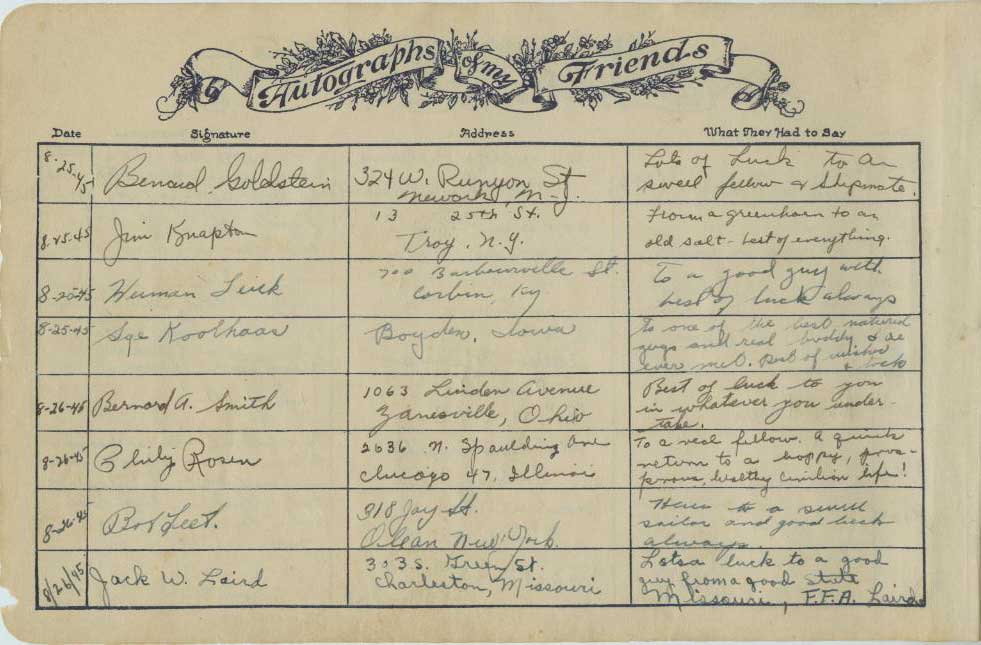 Autographs of my Friends
Date Signature Address What They Had to Say
8-25-45 Benard Goldstein 324 W. Runyon St Lots of Luck to an
Newark, N-J. swell fellow & Shipmate.
8-25-45 Jim Knapton 13 25th St. From a greenhorn to an
Troy, N.Y. old salt - best of everything.
8-25-45 Herman 700 Barbourville St. To a good guy with
Corbin, Ky best of luck always
8-25-45 Koolhaas Boyden, Iowa to one of the best natured
guys and real buddy I've
ever met. Best of wishes
& luck
8-26-45 Bernard A. Smith 1063 Linden Avenue Best of luck to you
Zanesville, Ohio in whatever you under-
take.
8-26-45 Philip Rosen 2636 N. Spaulding Ave To a real fellow. A quick
Chicago 47, Illinois return to a happy, pros-
perous, healthy civilian life!
8-26-45 318 Jay St. to a swell
Olean New York. sailor and good luck
always.
8/26/45 Jack W. Laird 303 S. Green St. Lotsa luck to a good
Charleston, Missouri guy from a good state
Missouri, F.F.A. Laird